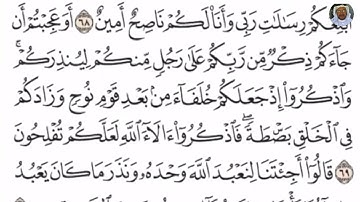 أُبَلِّغُكُمْ رِسَٰلَٰتِ رَبِّى وَأَنَا۠ لَكُمْ نَاصِحٌ أَمِينٌ ٦٨ أَوَعَجِبْتُمْ أَن
جَآءَكُمْ ذِكْرٌ مِّن رَّبِّكُمْ عَلَىٰ رَجُلٍ مِّنكُمْ لِيُنذِرَكُمْ ۚ
وَٱذْكُرُوٓا۟ إِذْ جَعَلَكُمْ خُلَفَآءَ مِنۢ بَعْدِ قَوْمِ نُوحٍ وَزَادَكُمْ
فِى ٱلْخَلْقِ بَصْۜطَةً ۖ فَٱذْكُرُوٓا۟ ءَالَآءَ ٱللَّهِ لَعَلَّكُمْ تُفْلِحُونَ
٦٩ قَالُوٓا۟ أَجِئْتَنَا لِنَعْبُدَ ٱللَّهَ وَحْدَهُۥ وَنَذَرَ مَا كَانَ يَعْبُدُ